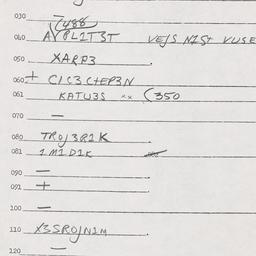 030 7488
040 A\/PL1T3T VEJS N1St VUSE
050 XARP3 .
060 + C1C3 C+EP3N
061 KATW3S xx (350
070 —
080 TROJ3R1K
081 1M1D1K
090 —
091 +
100 —
110 X3SROJN1M
120 —